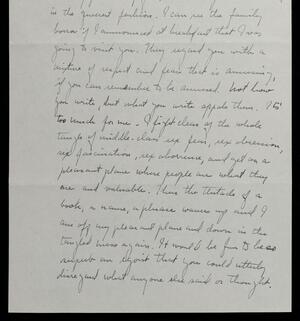 in the queerest positions. I can see the family
horror if I announced at breakfast that I was
going to visit you. They regard you with a
mixture of respect and fear that is amusing,
if you can remember to be amused. Not how
you write, but what you write appals them. It's
too much for me - I fight clear of the whole
tangle of middle-class sex fear, sex obsession,
sex fascination, sex abhorrence, and get on a
pleasant plane where people are what they
are and valuable. Then the tentacle of a
book, a name, a phrase waves up and I
am off my pleasant plane and down in the
tangled mess again. It would be fun to be so
superb an egoist that you could utterly
disregard what anyone else said or thought.